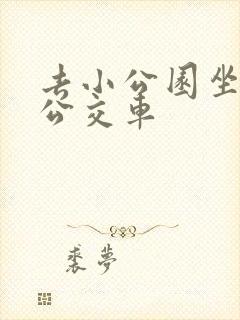 去小公园坐
公交车
裘梦